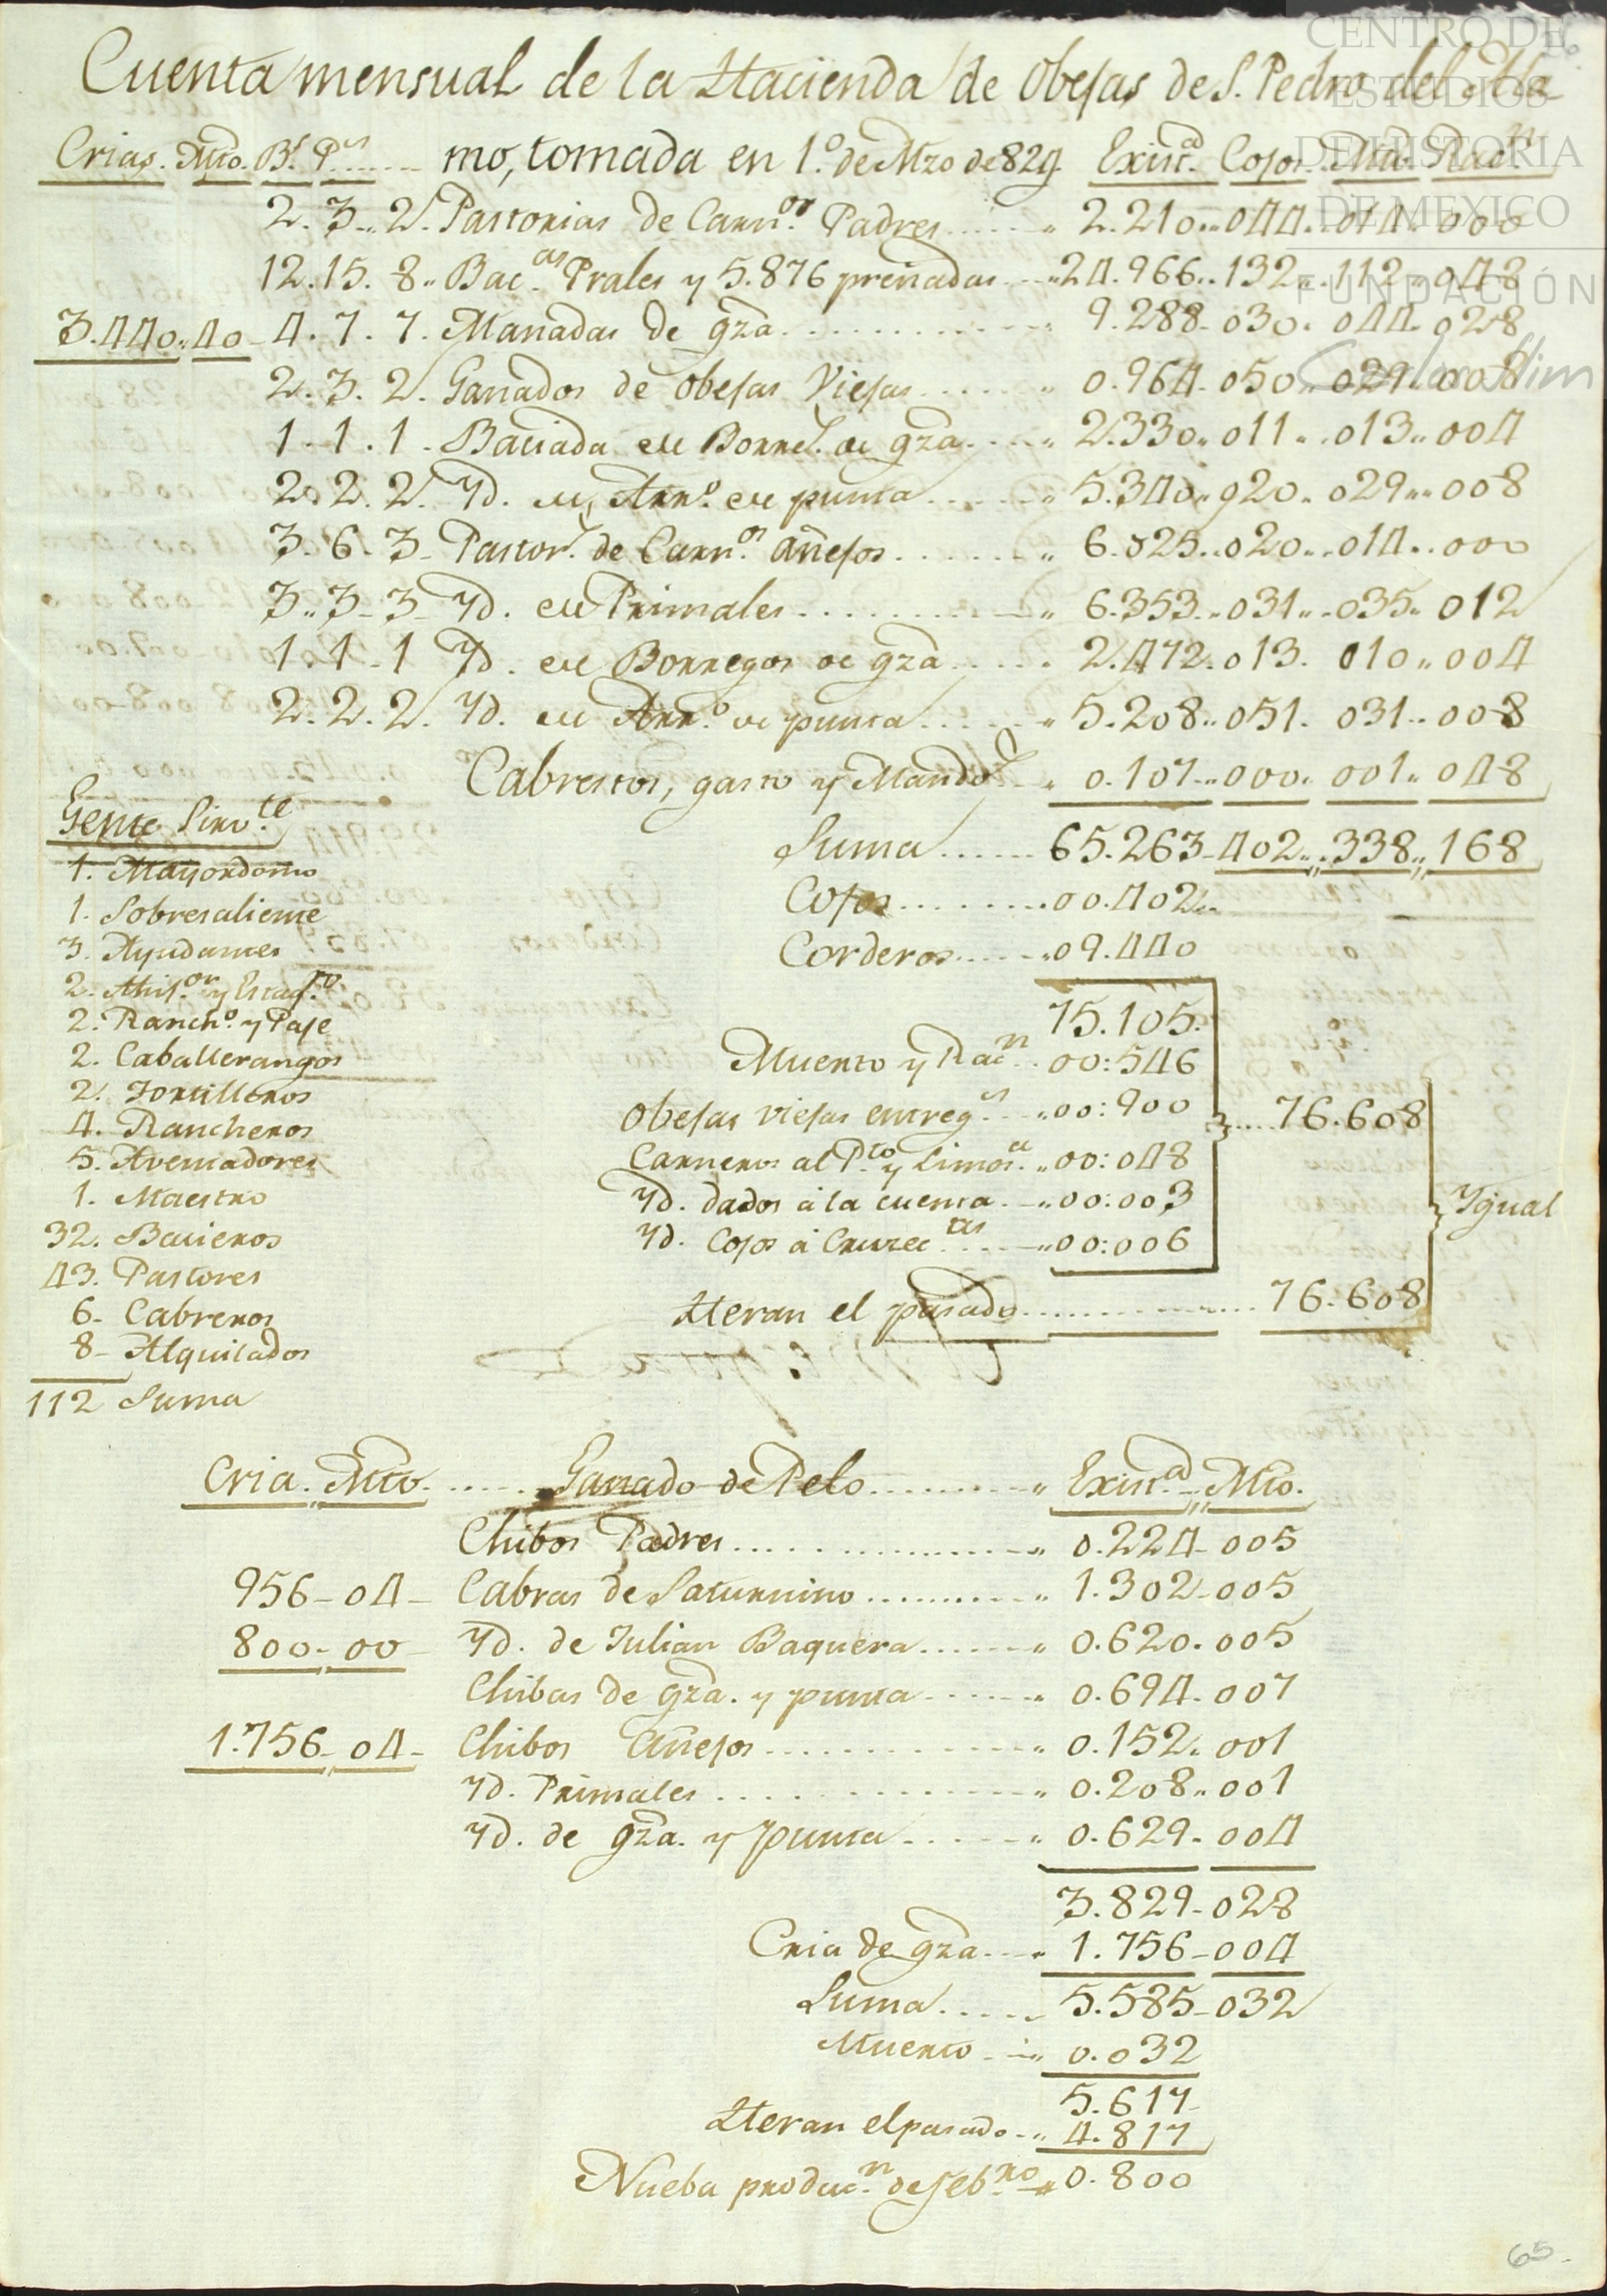 CENTRO DE
ESTUDIOS
DE HISTORIA
DE MEXICO
FUNDACIÓN
Carlos Slim
Cuenta mensual de la Hacienda de Obejas de S. Pedro del Ala
mo, tomada en 1.º de Mzo de 829.
Crias. Mto. Bs. Ps. Exist.as Cojos. Mto. Rac.n
2. 3.. 2. Pastorias de Carn.os Padres 2.210..044..014..000
12.15. 8.. Bac.as Prales y 5.876 preñadas 24.966..132..112..048
3.440..40 4. 7. 7. Manadas de gza. 9.288. 030. 044. 028
2. 3. 2. Ganados de obejas Viejas 0.964. 050. 029. 008
1. 1. 1. Baciada de Borre.s de gza. 2.330.. 011.. 013.. 004
2. 2. 2. Yd. de Arr.o de punta 5.340.. 020.. 029.. 008
3. 6. 3. Pastor.s de Carn.os añejos 6.025..020..014..000
3.. 3. 3. Yd. de Primales 6.353..031..035. 012
1. 1. 1 Yd. de Borregos de gza 2.472. 013. 010.. 004
2. 2. 2. Yd. de Arr.o de punta 5.208.. 051. 031.. 008
Cabrestos, gasto y Mando.s 0.107..000. 001.. 048
Suma 65.263-402..338..168
Cojos 00.402..
Corderos 09.440
75.105.
Muerto y Rac.n 00:546
Obejas viejas entreg.s 00:900 76.608
Carneros al P.to y Limos.a 00:048
Yd. dados á la cuenta 00:003 Ygual
Yd. Cojos á 00:006
Heran el pasado 76.608
Gente Sirv.te
1. Mayordomo
1. Sobresaliente
3. Ayudantes
2.
2. Ranch.o y Paje
2. Caballerangos
2. Tortilleros
4. Rancheros
5. Aventadores
1. Maestro
32. Bacieros
43. Pastores
6. Cabreros
8. Alquilados
112 Suma
Cria. Mto. Ganado de Pelo Exist.as Mto.
Chibos Padres 0.224-005
956-04- Cabras de Saturnino 1.302-005
800-00 Yd. de Julian Baquera 0.620.005
Chibas de gza. y punta 0.694.007
1.756-04- Chibos añejos 0.152.001
Yd. Primales 0.208..001
Yd. de gza. y punta 0.629.004
3.829-028
Cria de gza. 1.756-004
Suma 5.585-032
Muerto 0.032
5.617
Heran el pasado 4.817
Nueba producc.n de Feb.ro 0.800
65